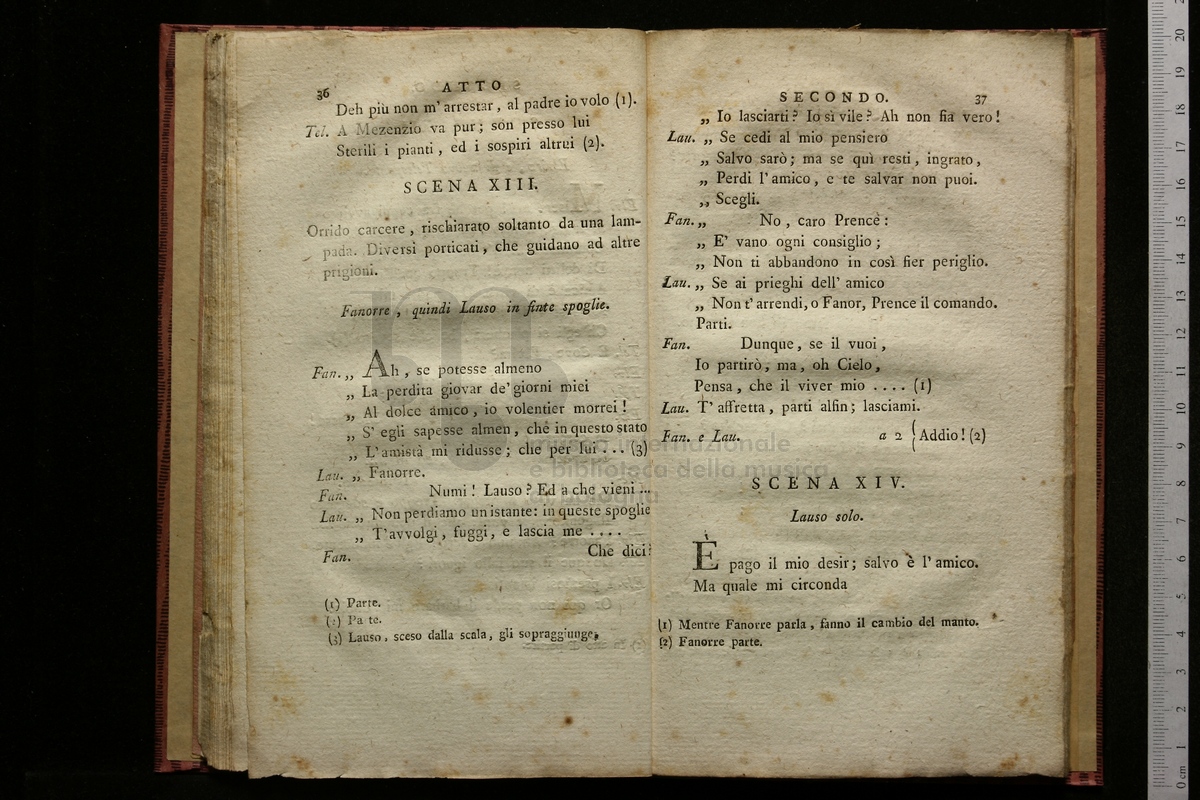 36
ATTO
Deh più non m'arrestar, al padre io volo (1).
Tel. A Mezenzio va pur; son presso lui
Sterili i pianti, ed i sospiri altrui (2).
SCENA XIII.
Orrido carcere, rischiarato soltanto da una lam-
pada. Diversi porticati, che guidano ad altre
prigioni.
Fanorre, quindi Lauso in finte spoglie.
Fan. „ Ah, se potesse almeno
„ La perdita giovar de' giorni miei
„ Al dolce amico, io volentier morrei!
„ S' egli sapesse almen, che in questo stato
„ L'amistà mi ridusse; che per lui ... (3)
Lau. „ Fanorre.
Fan. Numi! Lauso? Ed a che vieni ...
Lau. „ Non perdiamo un istante: in queste spoglie
„ T'avvolgi, fuggi, e lascia me ....
Fan. Che dici?
(1) Parte.
(2) Pa te.
(3) Lauso, sceso dalla scala, gli sopraggiunge.
SECONDO.
37
„ Io lasciarti? Io sì vile? Ah non fia vero!
Lau. „ Se cedi al mio pensiero
„ Salvo sarò; ma se quì resti, ingrato,
„ Perdi l'amico, e te salvar non puoi.
„ Scegli.
Fan. „ No, caro Prence:
„ E' vano ogni consiglio;
„ Non ti abbandono in così fier periglio.
Lau. „ Se ai prieghi dell' amico
„ Non t'arrendi, o Fanor, Prence il comando.
Parti.
Fan. Dunque, se il vuoi,
Io partirò, ma, oh Cielo,
Pensa, che il viver mio .... (1)
Lau. T' affretta, parti alfin; lasciami.
Fan. e Lau. a 2 { Addio! (2)
SCENA XIV.
Lauso solo.
È pago il mio desir; salvo è l'amico.
Ma quale mi circonda
(1) Mentre Fanorre parla, fanno il cambio del manto.
(2) Fanorre parte.
museo internazionale
e biblioteca della musica
di bologna